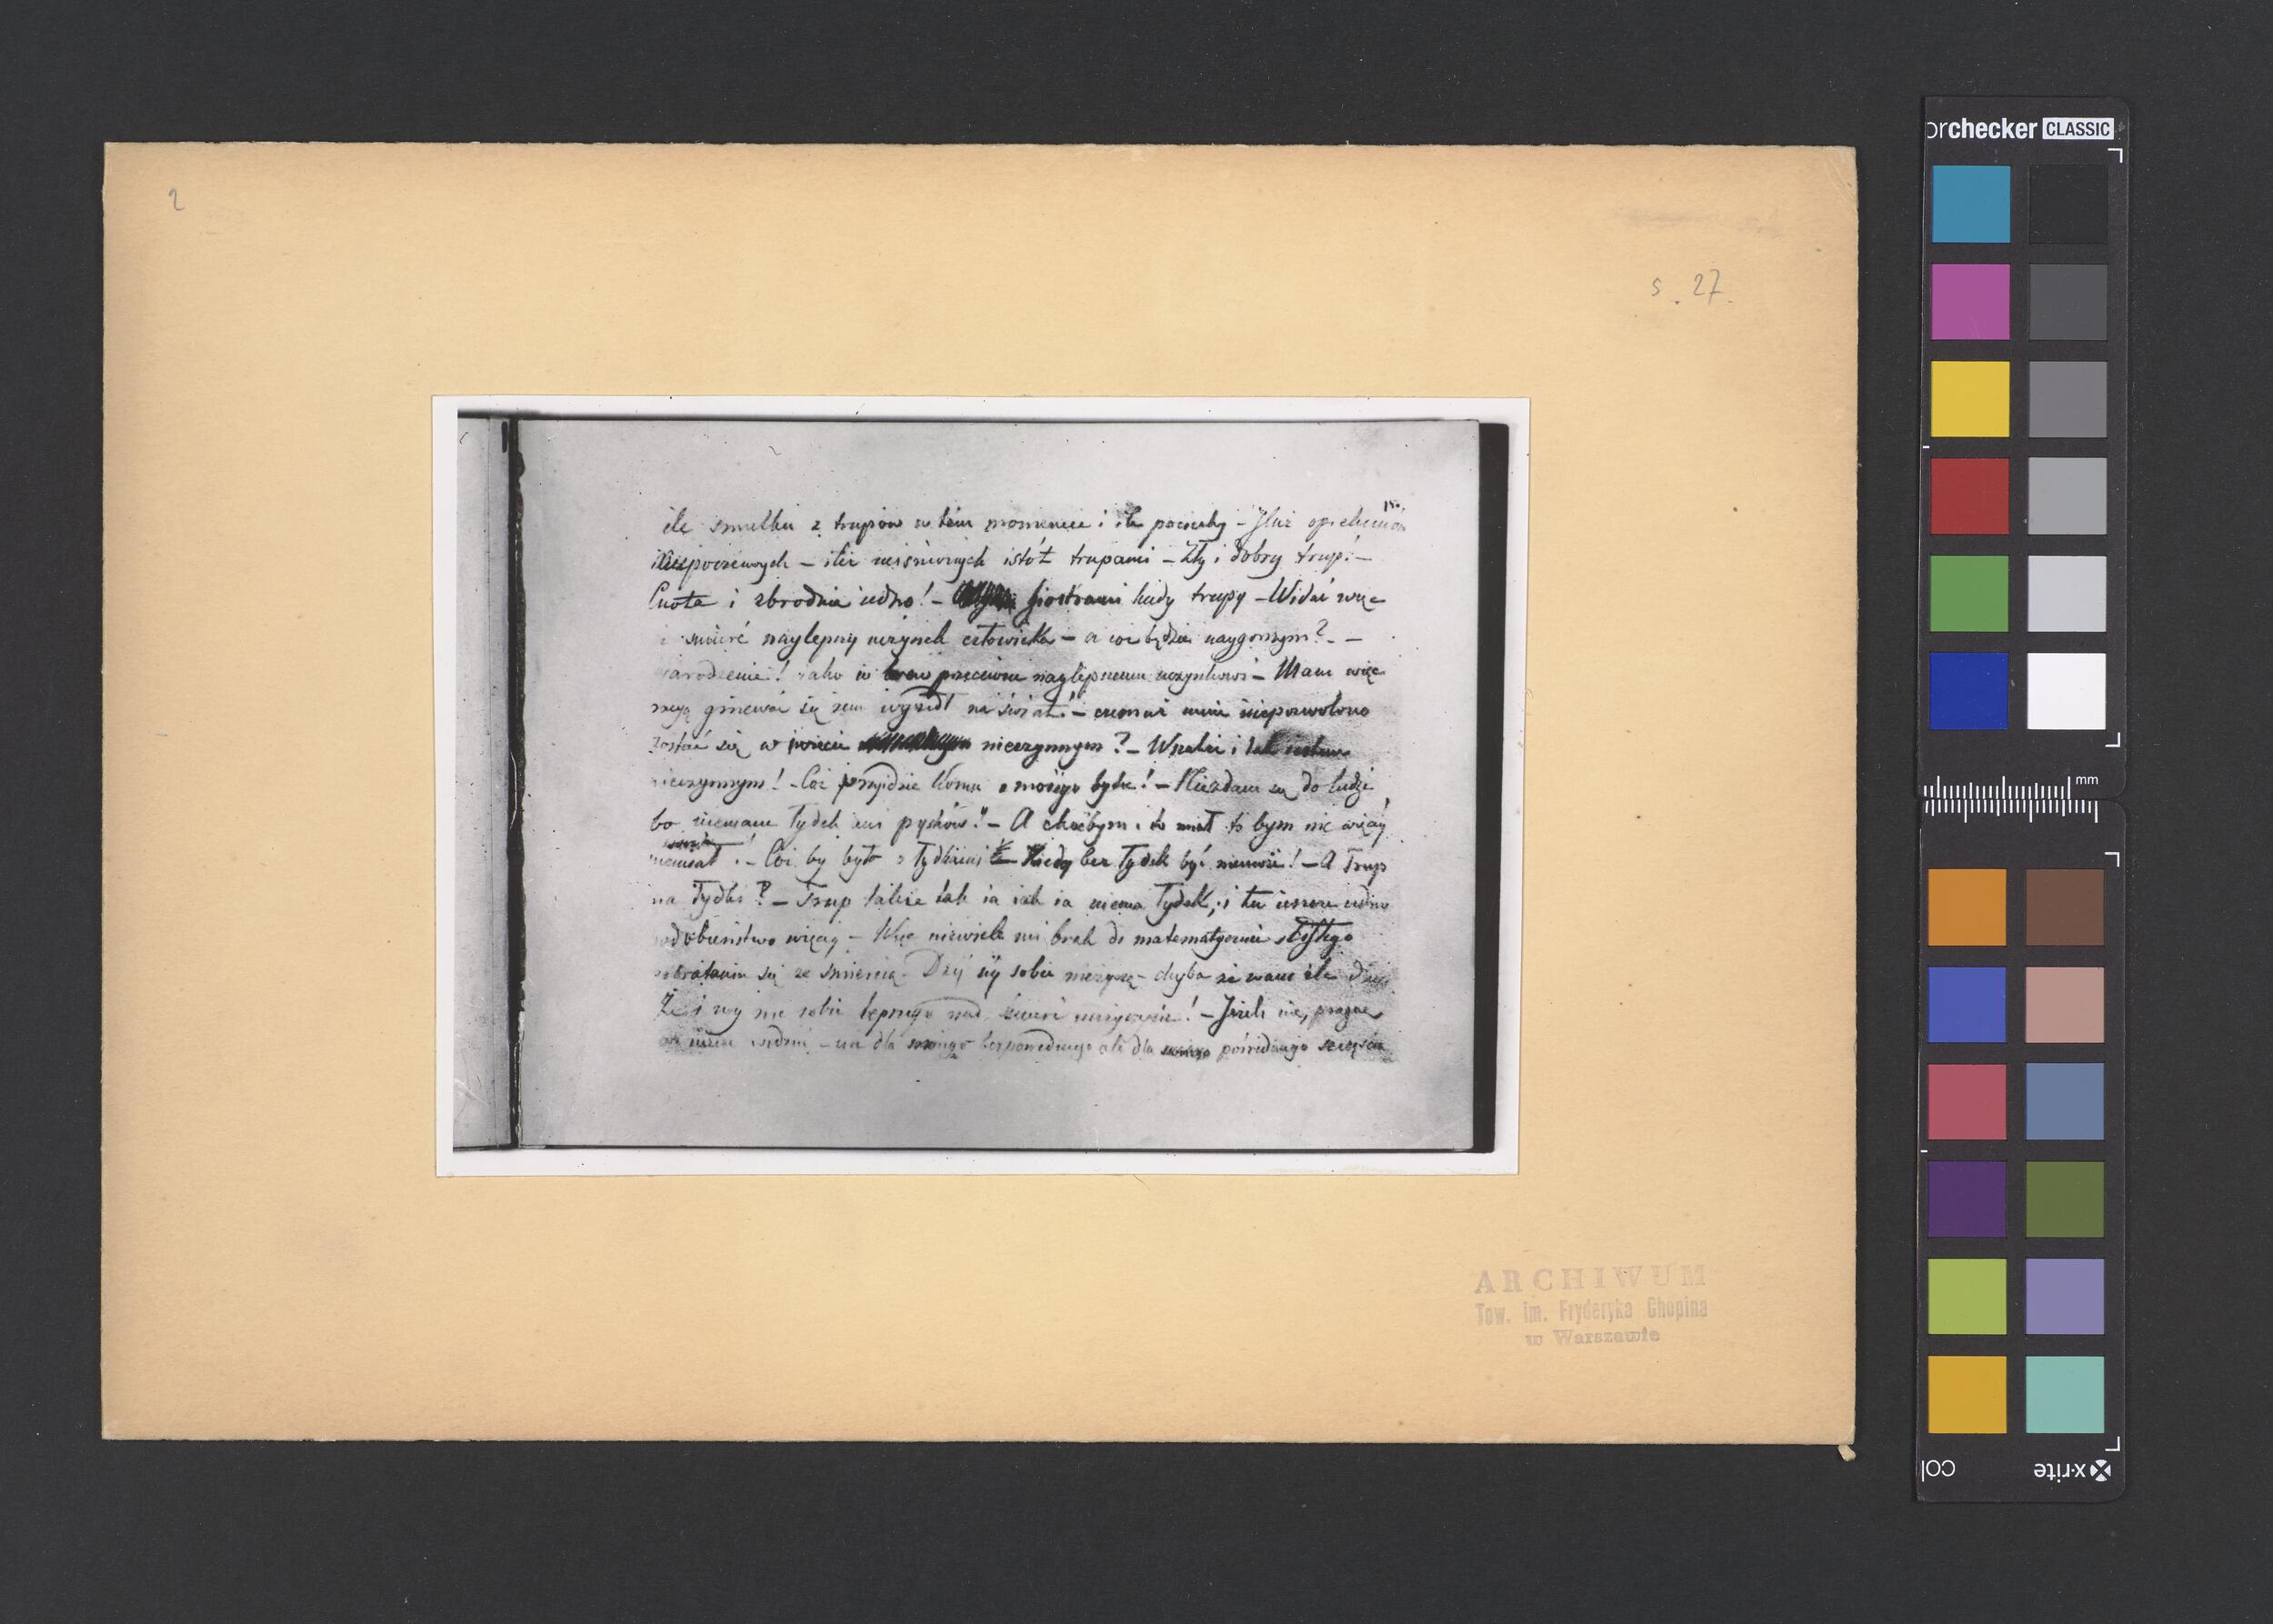 2
s. 27.
ile smutku z trupów w tém momencie i ile pociechy – Iluż opiekunów
niepoczciwych – ileż nieszczęśnych istót trupami – Zły i dobry trup! –
Cnota i zbrodnia iedno! – siostrami kiedy trupy – Widać więc
że śmierć naylepszy uczynek człowieka – a coż będzie naygorszym? –
narodzenie! iako wprost przeciwne naylepszemu uczynkowi – Mam więc
racyą gniewać się żem wyszedł na świat! – czemuż mnie niepozwolono
zostać się w świecie nieczynnym? – Wszakże i tak iestem
nieczynnym! – Coż przyjdzie komu z mojego bytu! – Niezdam się do ludzi,
bo niemam łydek ani pysków! – A choćbym i to miał to bym nic więcéj
niemiał! – Coż by było z łydkami – Kiedy bez łydek być niemoże! – A Trup
ma łydki? – Trup także tak ia iak ia niema łydek, i tu ieszcze iedno
podobieństwo więcéj – Więc niewiele mi brak do matematycznie ścisłego
zbratania się ze śmiercią – Dziś iéj sobie nieżyczę – chyba że wam źle dzieci
Że i wy nic sobie lepszego nad śmierć nieżyczycie! – Jeżeli nie, pragnę
was ieszcze widzieć – nie dla mojego bezpośredniego ale dla pośredniego szczęścia
ARCHIWUM
Tow. im. Fryderyka Chopina
w Warszawie
orchecker CLASSIC
mm
x-rite
col